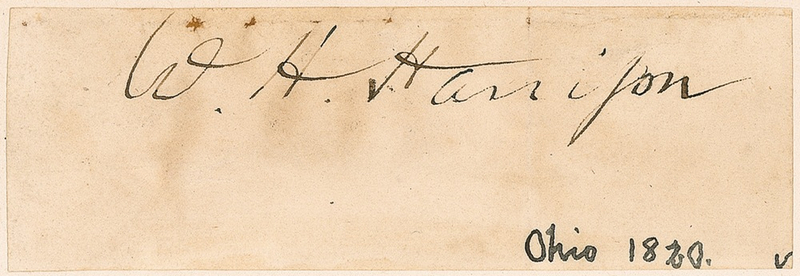 W. H. Harrison
Ohio 1820.